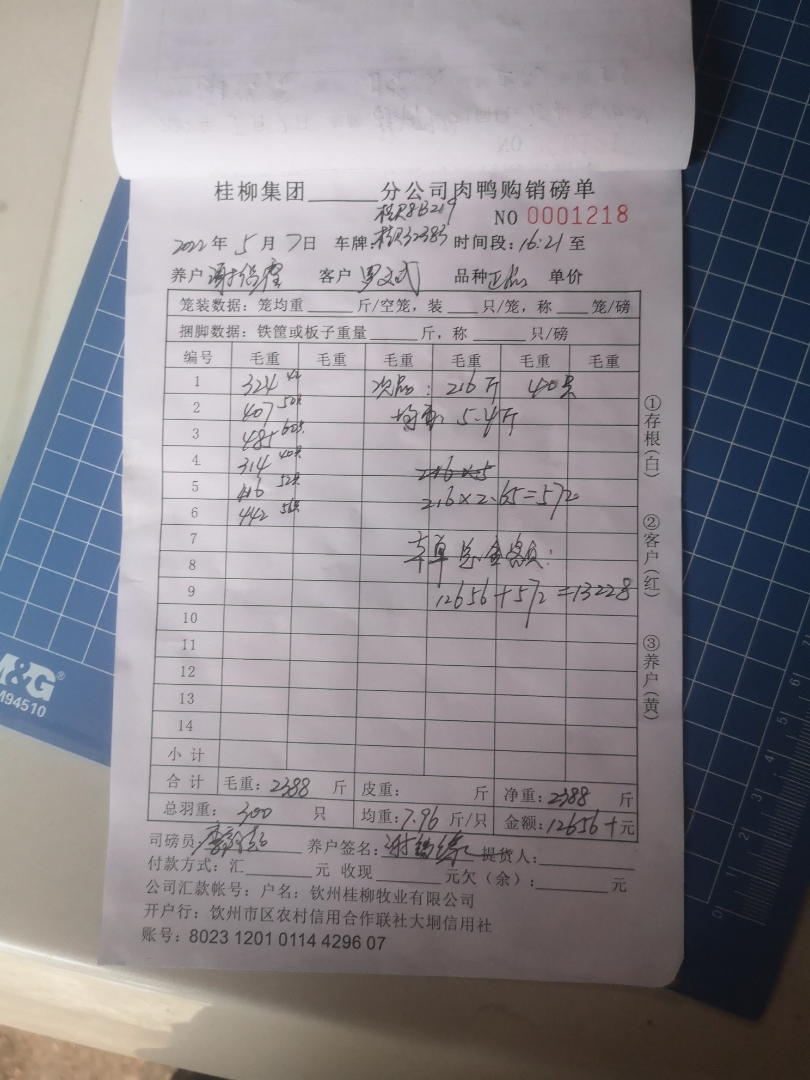 桂柳集团______分公司肉鸭购销磅单
NO 0001218
2022年 5月 7日 车牌: 时间段: 16:21 至
养户 客户 罗文武 品种 正品 单价
笼装数据: 笼均重______斤/空笼, 装____只/笼, 称____笼/磅
捆脚数据: 铁筐或板子重量______斤, 称______只/磅
编号 毛重 毛重 毛重 毛重 毛重 毛重
1 324 42 次品: 216斤 40只
2 407 50只 均重: 5.4斤
3 485 60只
4 314 40只 216×5
5 416 52只 216×2.65=572
6 442 56只
7 本单总金额:
8
9 12656+572=13228
10
11
12
13
14
小计
合计 毛重: 2388 斤 皮重: 斤 净重: 2388 斤
总羽重: 300 只 均重: 7.96 斤/只 金额: 12656 元
司磅员: 养户签名: 提货人:
付款方式: 汇______元 收现______元欠(余):______元
公司汇款帐号: 户名: 钦州桂柳牧业有限公司
开户行: 钦州市区农村信用合作联社大垌信用社
账号: 8023 1201 0114 4296 07
①存根(白)
②客户(红)
③养户(黄)
M&G®
M94510